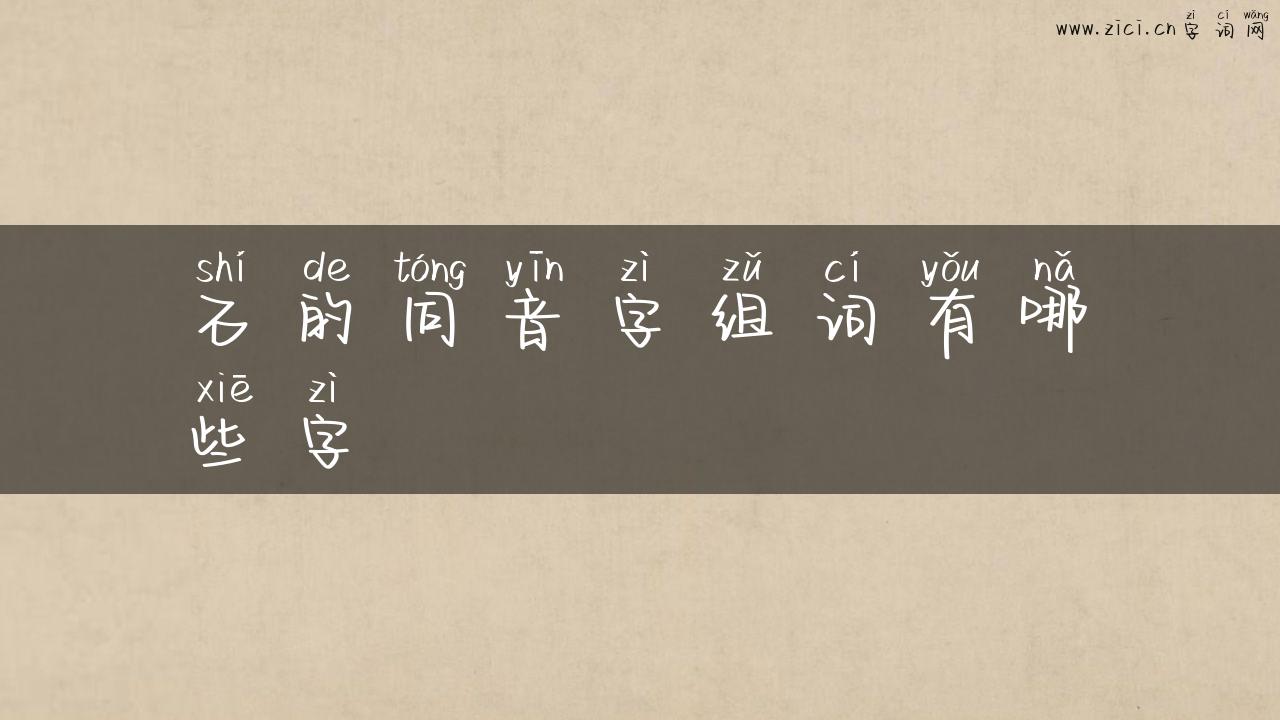 zì cí wǎng
www.zici.cn 字词网
shí de tóng yīn zì zǔ cí yǒu nǎ
石的同音字组词有哪
xiē zì
些字